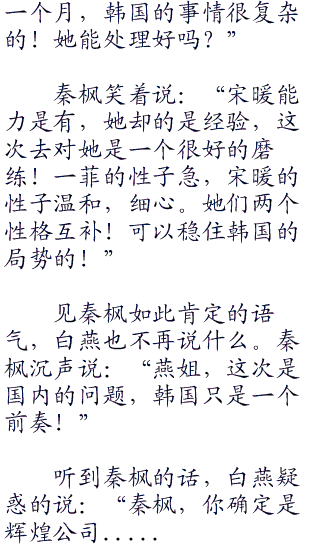 一个月，韩国的事情很复杂
的！她能处理好吗？”
秦枫笑着说：“宋暖能
力是有，她却的是经验，这
次去对她是一个很好的磨
练！一菲的性子急，宋暖的
性子温和，细心。她们两个
性格互补！可以稳住韩国的
局势的！”
见秦枫如此肯定的语
气，白燕也不再说什么。秦
枫沉声说：“燕姐，这次是
国内的问题，韩国只是一个
前奏！”
听到秦枫的话，白燕疑
惑的说：“秦枫，你确定是
辉煌公司.....